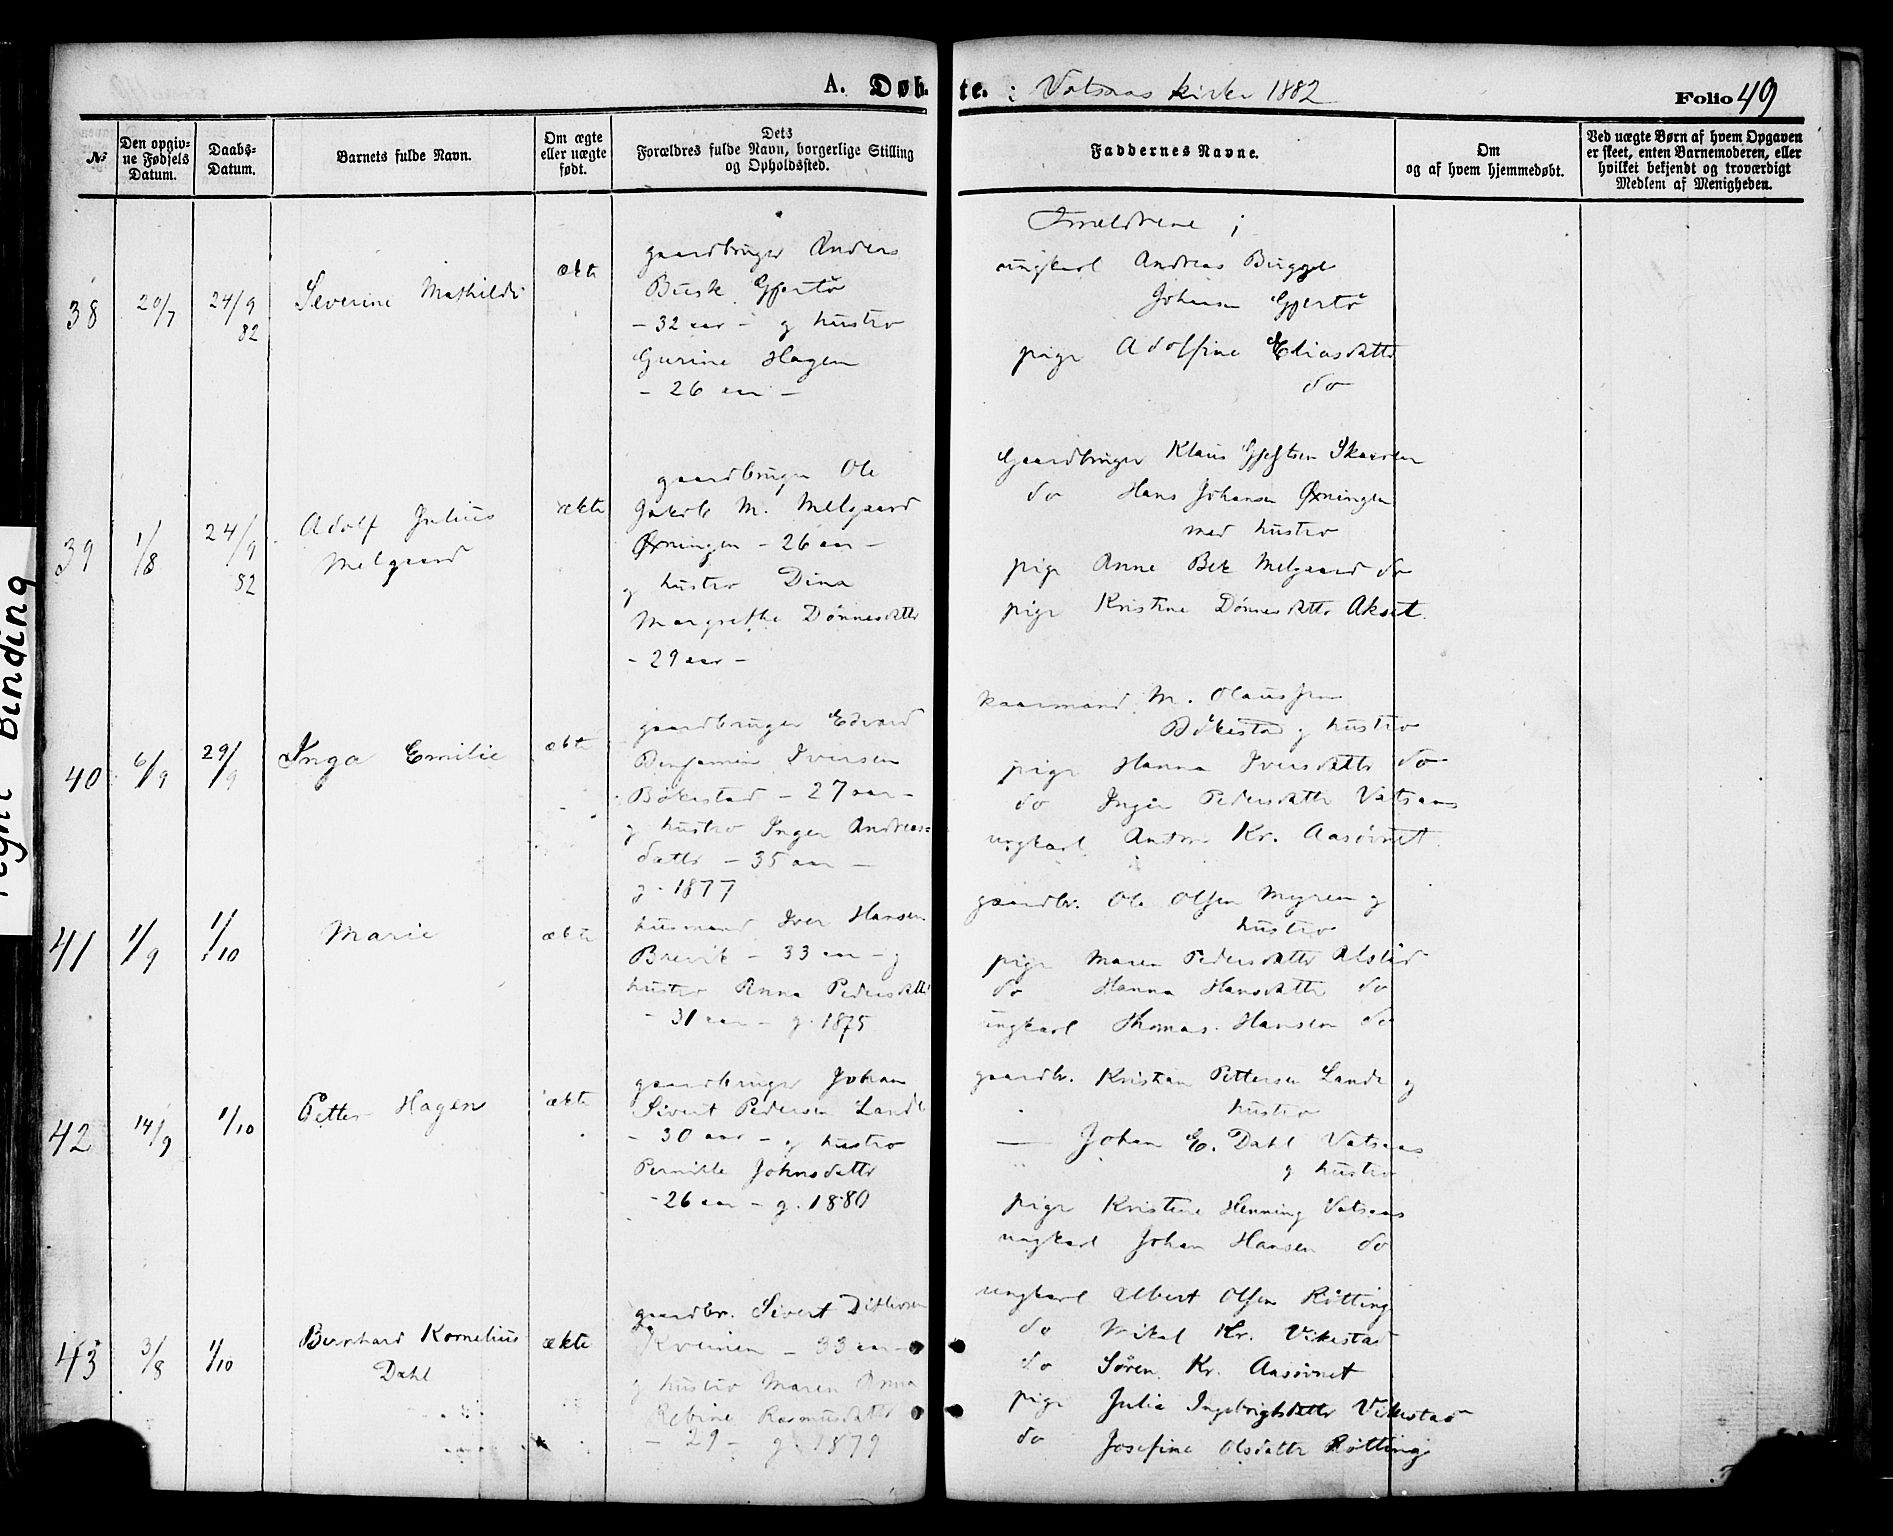 A. Døbte. : Vatsaas kirke 1882
Folio 49
No
Den opgivne Fødsels Datum.
Daabs-Datum.
Barnets fulde Navn.
Om ægte eller uægte født.
Dets Forældres fulde Navn, borgerlige Stilling og Opholdssted.
Faddernes Navne.
Om og af hvem hjemmedøbt.
Ved uægte Børn af hvem Opgaven er skeet, enten Barnemoderen, eller hvilket bekjendt og troværdigt Medlem af Menigheden.
38
20/7
24/9 82
Severine Mathilde
ækte
gaardbruger Anders
Busk Gjertø
– 32 aar – og hustro
Gurine Hagen
– 26 aar –
Forældrene ;
ungkarl Andreas Bugge
Johansen Gjertø
pige Adolfine Eliasdattr
do
39
1/8
24/9 82
Adolf Julius
Melgaard
ækte
gaardbruger Ole
Jakob M. Melgaard
Øxningen – 26 aar –
og hustro Dina
Margrethe Dønnesdattr
– 29 aar –
Gaardbruger Klaus
do Hans Johansen Øxningen
med hustro
pige Anne Melgaard do
pige Kristine Dønnesdattr Akset
40
6/9
29/9
Inga Emilie
ækte
gaardbruger Edvard
Benjamin Iversen
Bøkestad – 27 aar –
og hustro Inger Andreas=
dattr – 35 aar –
g. 1877
kaarmand M. Olaussen
Bøkestad og hustro
pige Hanna Iversdattr do
do Inger Pedersdattr Vatsaas
ungkarl Anton Kr. Aasøvnet
41
1/9
1/10
Marie
ækte
husmand Iver Hansen
Brevik – 33 aar – og
hustro Anna Pedersdattr
– 31 aar – g. 1875
gaardbr. Ole Olsen Myren og
hustro
pige Maren Pedersdattr Alstad
do Hanna Hansdattr do
ungkarl Thomas Hansen do
42
14/9
1/10
Petter Hagen
ækte
gaardbruger Johan
Sivert Pedersen Lande
– 30 aar – og hustro
Pernille Johnsdattr
– 26 aar – g. 1880
gaardbr. Kristian Pettersen Lande og
hustro
— Johan E. Dahl Vatsaas
og hustro
pige Kristine Henning Vatsaas
ungkarl Johan Hansen do
43
3/8
1/10
Bernhard Kornelius
Dahl
ækte
gaardbr. Sivert Ditlevsen
Kveinen – 33 aar –
og hustro Maren Anna
Rebine Rasmusdattr
– 29 – g. 1879
ungkarl Albert Olsen Røtting
do Mikal Kr. Vikestad
do Søren Kr. Aasøvnet
pige Julie Ingebrigtsdattr Vikestad
do Josefine Olsdattr Røtting
Binding